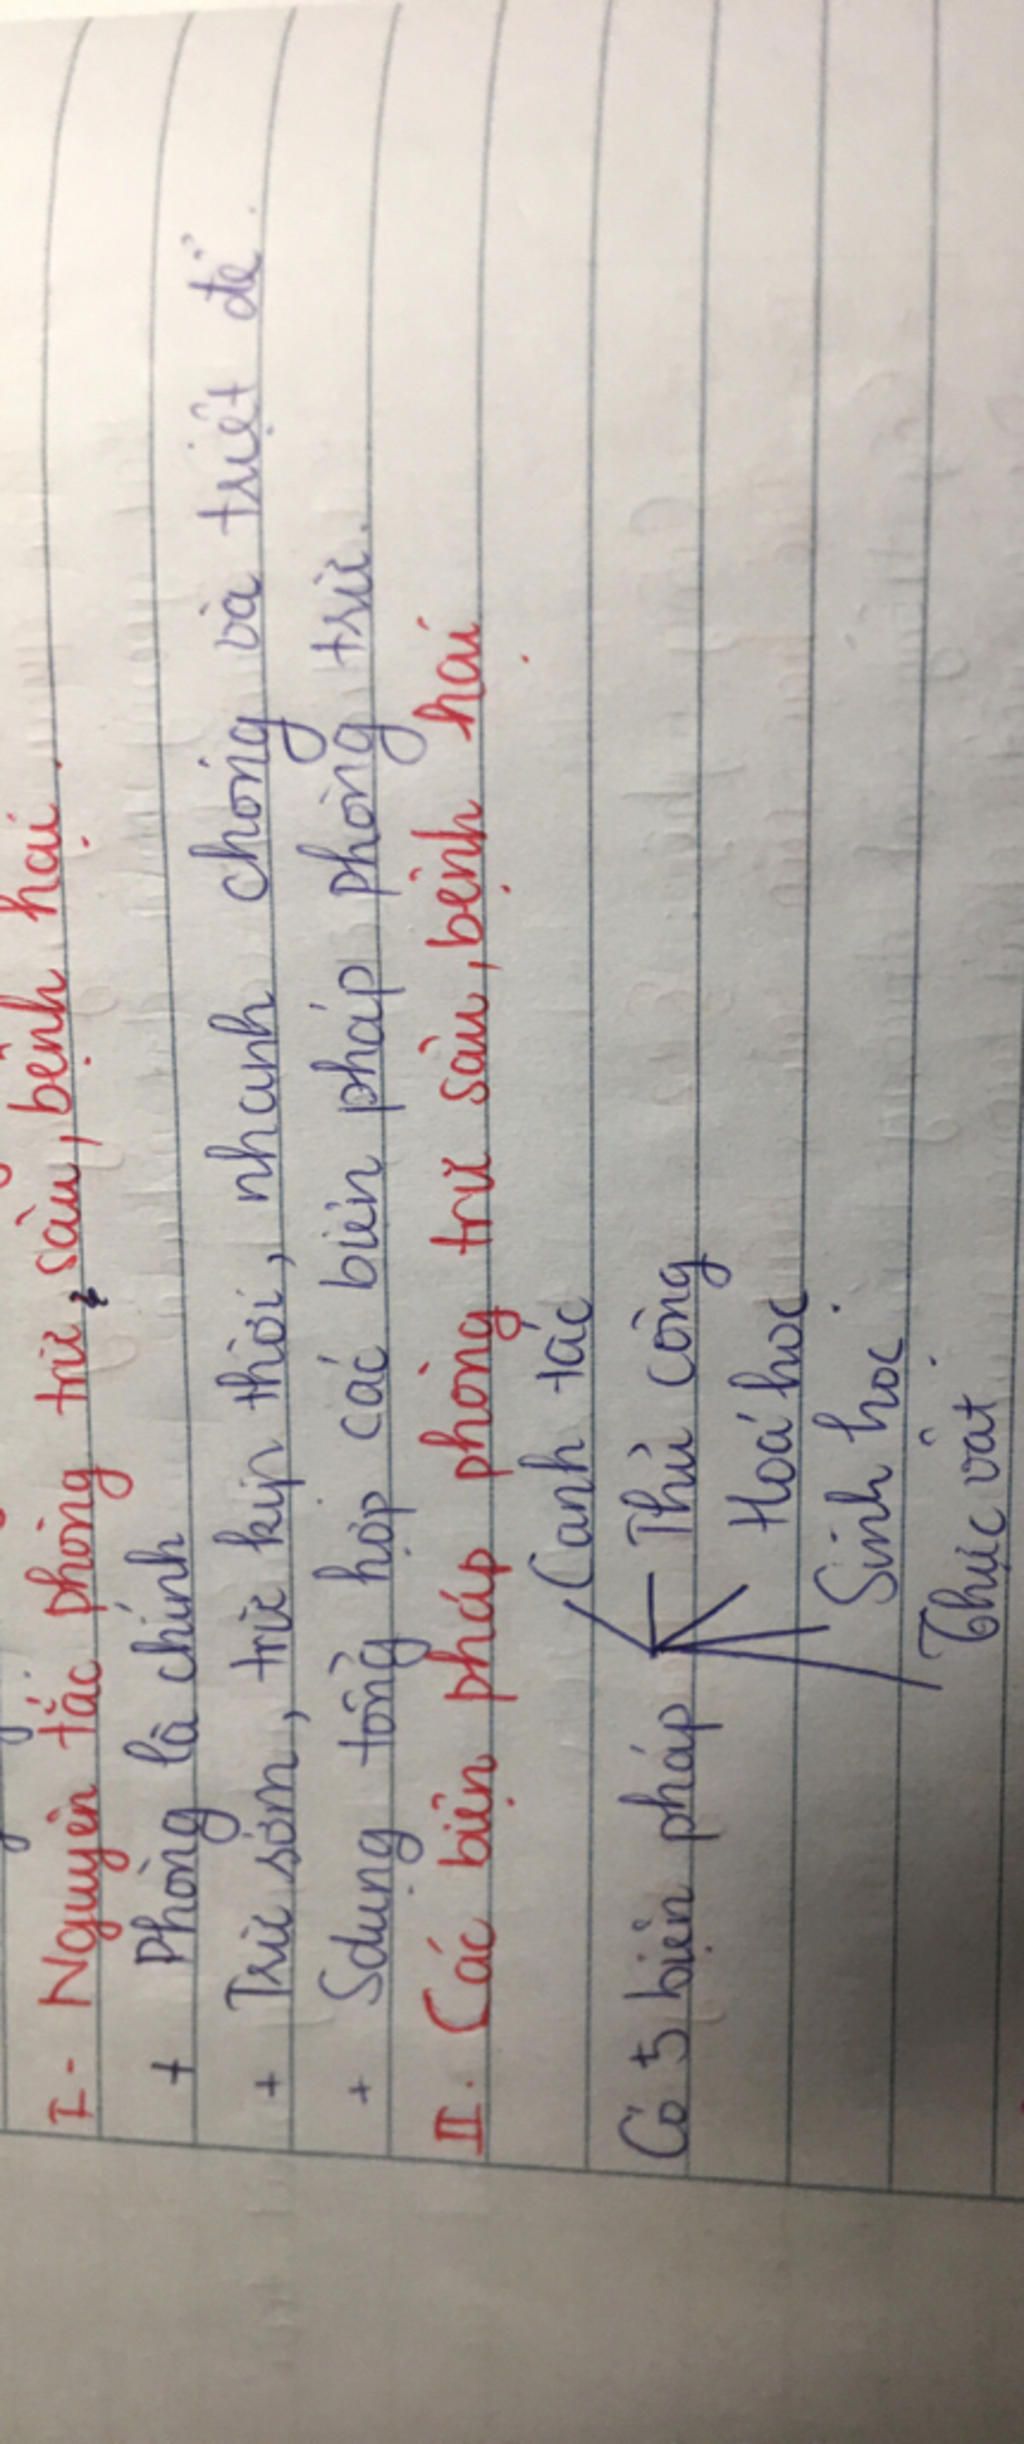 I - Nguyên tắc phòng trừ sâu, bệnh hại.
+ Phòng là chính
+ Trừ sớm, trừ kịp thời, nhanh chóng và triệt để.
+ Sdụng tổng hợp các biện pháp phòng trừ.
II. Các biện pháp phòng trừ sâu, bệnh hại
Có 5 biện pháp
Canh tác
Thủ công
Hoá học
Sinh học
Thực vật